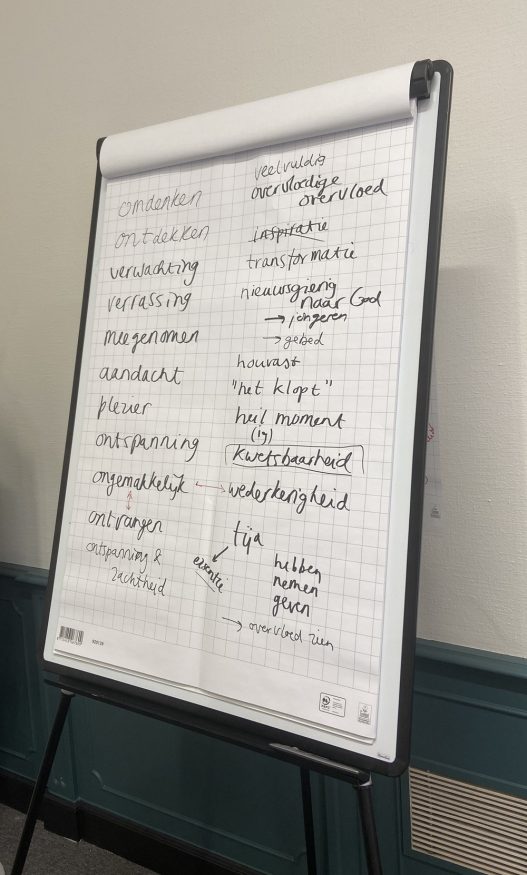 omdenken
ontdekken
verwachting
verrassing
meegenomen
aandacht
plezier
ontspanning
ongemakkelijk ↔ wederkerigheid
ontvangen
ontspanning &
zachtheid
veelvuldig
overvloedige
overvloed
inspiratie
transformatie
nieuwsgierig
naar God
→ jongeren
→ gebed
houvast
"het klopt"
heil moment
(ig)
kwetsbaarheid
tija
essentie
hebben
nemen
geven
→ overvloed zien